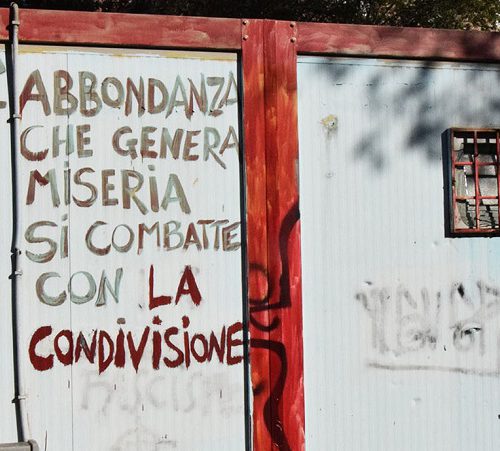 ABBONDANZA
CHE GENERA
MISERIA
SI COMBATTE
CON LA
CONDIVISIONE